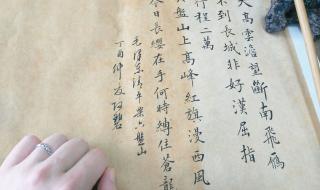 天高雲澹望斷南飛雁
不到長城非好漢屈指
行程二萬
六盤山上高峰紅旗漫西風
今日長纓在手何時縛住蒼龍
毛澤東清平樂六盤山
丁酉仲夏